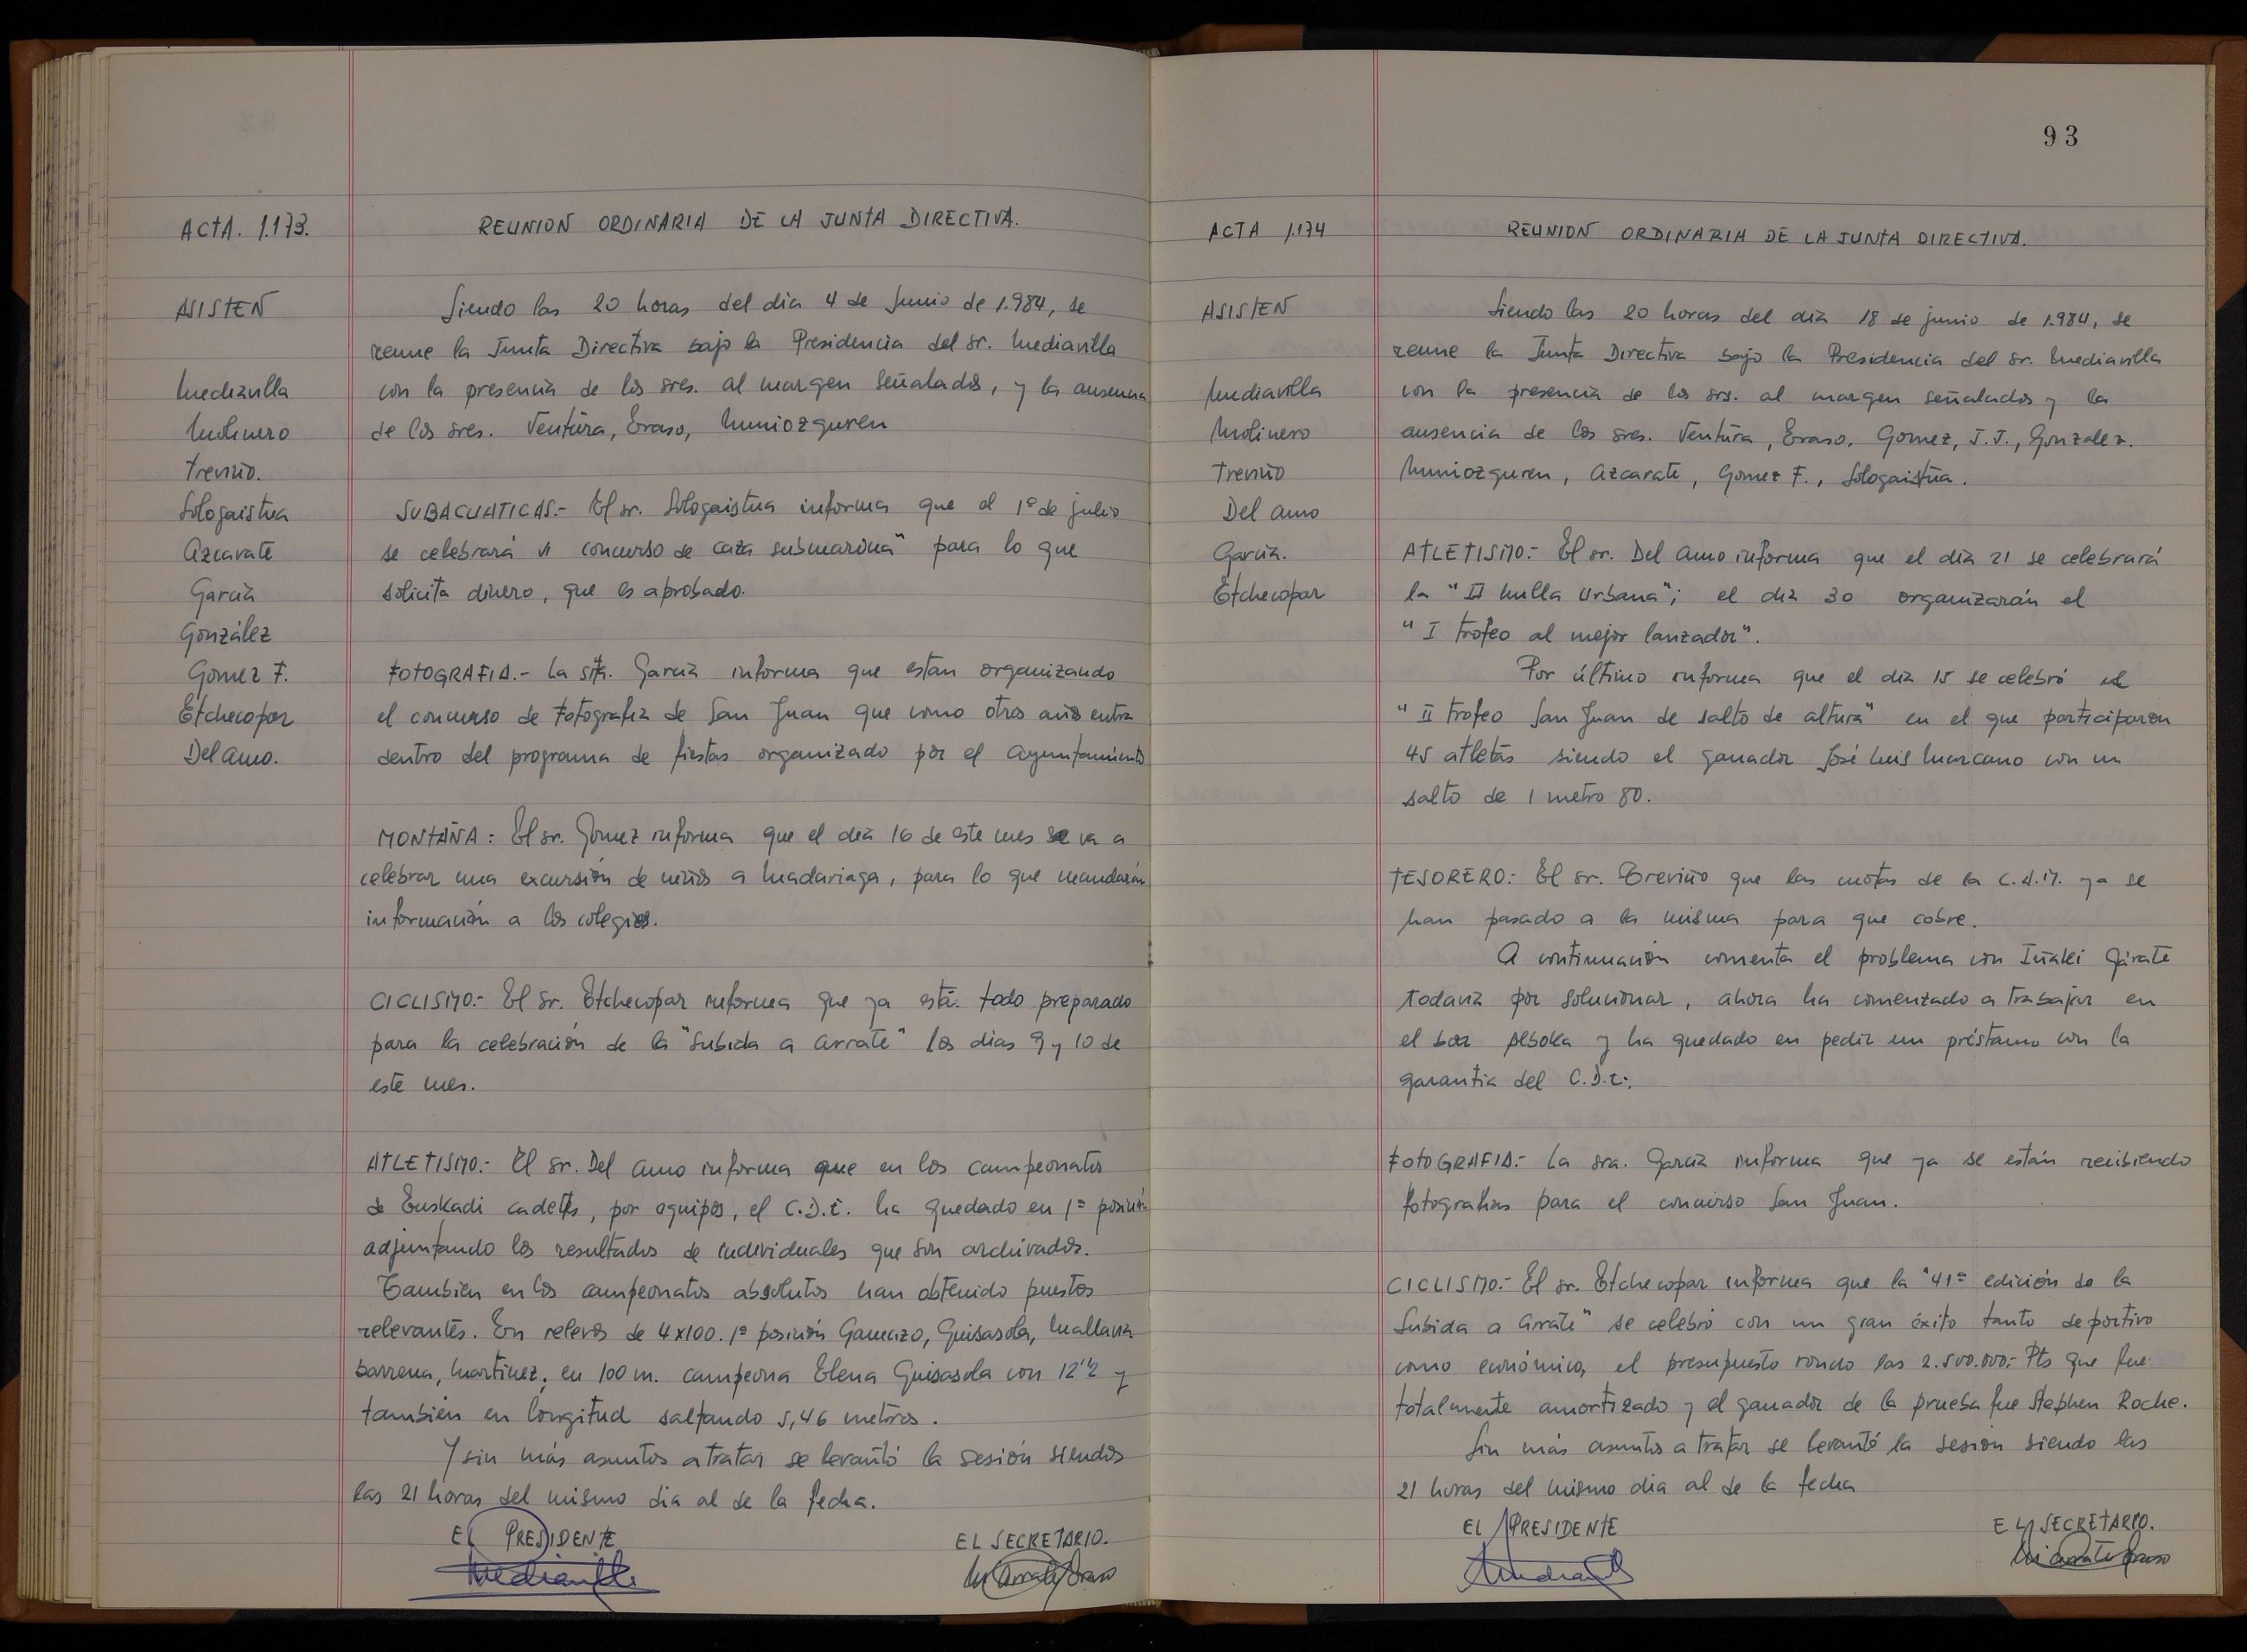 ACTA. 1.173.
REUNION ORDINARIA DE LA JUNTA DIRECTIVA.
ASISTEN
Mediavilla
Molinero
Treviño.
Sologaistua
Azcarate
García
González
Gomez F.
Etchecopar
Del Amo.
Siendo las 20 horas del día 4 de Junio de 1.984, se
reune la Junta Directiva bajo la Presidencia del sr. Mediavilla
con la presencia de los sres. al margen señalados, y la ausencia
de los sres. Ventura, Eraso, Muniozguren
SUBACUATICAS.- El sr. Sologaistua informa que el 1º de julio
se celebrará concurso de caza submarina" para lo que
solicita dinero, que es aprobado.
FOTOGRAFIA.- La srta. García informa que estan organizando
el concurso de Fotografía de San Juan que como otros años entra
dentro del programa de fiestas organizado por el Ayuntamiento
MONTAÑA: El sr. Gomez informa que el día 16 de este mes se va a
celebrar una excursión de niños a Madariaga, para lo que mandarán
información a los colegios.
CICLISMO.- El Sr. Etchecopar informa que ya está todo preparado
para la celebración de la "Subida a Arrate" los dias 9 y 10 de
este mes.
ATLETISMO.- El sr. Del Amo informa que en los campeonatos
de Euskadi cadetes, por equipos, el C.D.E. ha quedado en 1ª posición
adjuntando los resultados de individuales que son archivados.
Tambien en los campeonatos absolutos han obtenido puestos
relevantes. En relevos de 4x100. 1ª posición Gamazo, Guisasola, Mallavia
barrena, Martinez, en 100 m. campeona Elena Guisasola con 12"2 y
también en longitud saltando 5,46 metros.
Y sin más asuntos a tratar se levantó la sesión siendos
las 21 horas del mismo dia al de la fecha.
EL PRESIDENTE
EL SECRETARIO.
Mediavilla
93
ACTA 1.174
REUNION ORDINARIA DE LA JUNTA DIRECTIVA.
ASISTEN
Mediavilla
Molinero
Treviño
Del Amo
García.
Etchecopar
Siendo las 20 horas del día 18 de junio de 1.984, se
reune la Junta Directiva bajo la Presidencia del sr. Mediavilla
con la presencia de los srs. al margen señalados y la
ausencia de los sres. Ventura, Eraso, Gomez, J.J., Gonzalez.
Muniozguren, Azcarate, Gomez F., Sologaistua.
ATLETISMO.- El sr. Del Amo informa que el día 21 se celebrará
la "II Milla Urbana"; el día 30 organizarán el
"I trofeo al mejor lanzador".
Por último informa que el día 15 se celebró el
"II trofeo San Juan de salto de altura" en el que participaron
45 atletas siendo el ganador José Luis Marcano con un
salto de 1 metro 80.
TESORERO.- El sr. Treviño que las cuotas de la C.A.M. ya se
han pasado a la misma para que cobre.
A continuación comenta el problema con Iñaki Gárate
todavía por solucionar, ahora ha comenzado a trabajar en
el bar Alboka y ha quedado en pedir un préstamo con la
garantía del C.D.E.
FOTOGRAFIA.- La sra. García informa que ya se están recibiendo
fotografias para el concurso San Juan.
CICLISMO.- El sr. Etchecopar informa que la "41ª edición de la
Subida a Arrate" se celebró con un gran éxito tanto deportivo
como económico, el presupuesto rondo las 2.500.000.- Pts que fue
totalmente amortizado y el ganador de la prueba fue Stephen Roche.
Sin más asuntos a tratar se levantó la sesión siendo las
21 horas del mismo dia al de la fecha
EL PRESIDENTE
EL SECRETARIO.